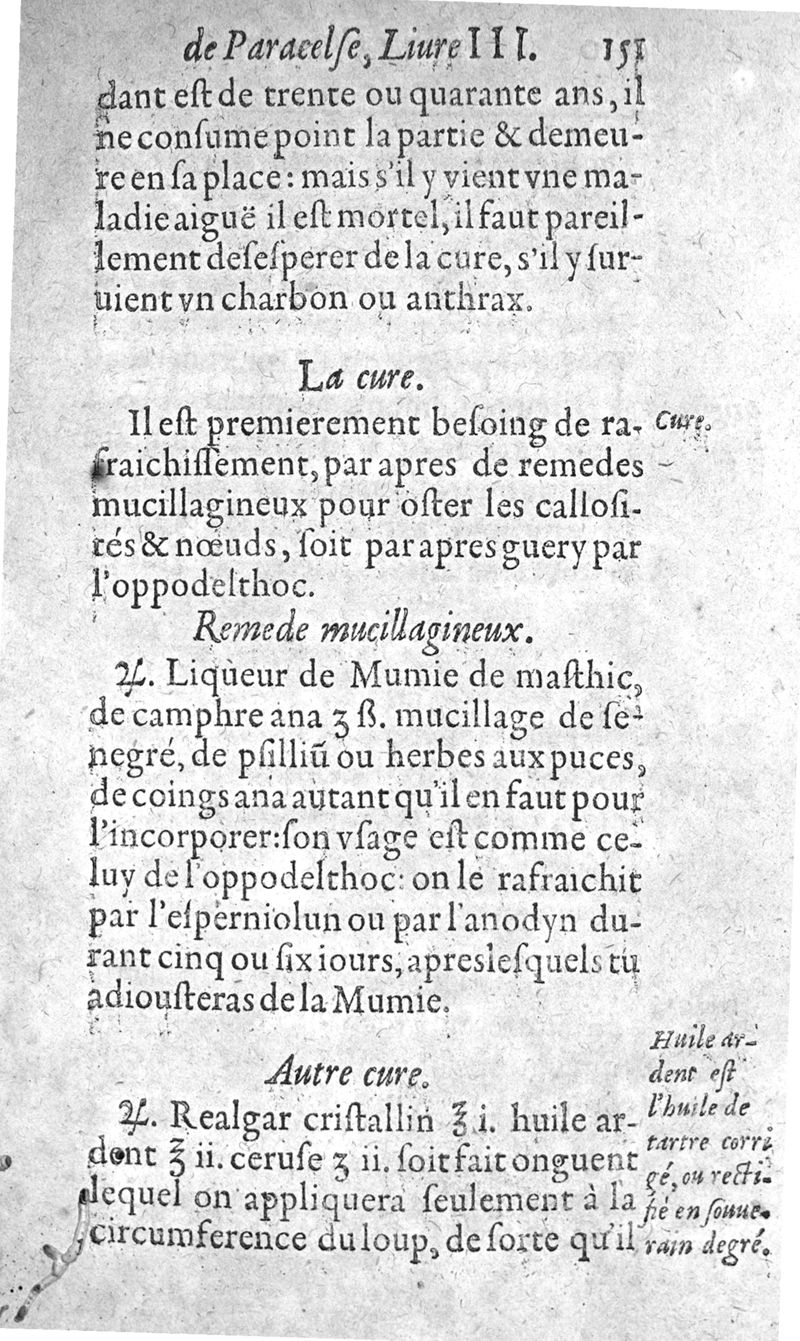 de Paracelſe, Liure III. 151
dant eſt de trente ou quarante ans, il
ne conſume point la partie & demeu-
re en ſa place : mais s'il y vient vne ma-
ladie aiguë il eſt mortel, il faut pareil-
lement deſeſperer de la cure, s'il y ſur-
uient vn charbon ou anthrax.
La cure.
Il eſt premierement beſoing de ra-
fraichiſſement, par apres de remedes
mucillagineux pour oſter les calloſi-
tés & nœuds, ſoit par apres guery par
l'oppodelthoc.
Cure.
Remede mucillagineux.
♃. Liqueur de Mumie de maſthic,
de camphre ana ʒ ß. mucillage de ſe-
negré, de pſilliũ ou herbes aux puces,
de coings ana autant qu'il en faut pour
l'incorporer: ſon vſage eſt comme ce-
luy de l'oppodelthoc: on le rafraichit
par l'eſperniolun ou par l'anodyn du-
rant cinq ou ſix iours, apres leſquels tu
adiouſteras de la Mumie.
Autre cure.
♃. Realgar criſtallin ℥ i. huile ar-
dent ℥ ii. ceruſe ʒ ii. ſoit fait onguent
lequel on appliquera ſeulement à la
circumference du loup, de ſorte qu'il
Huile ar-
dent eſt
l'huile de
tartre corri
gé, ou recti-
fié en ſouue-
rain degré.